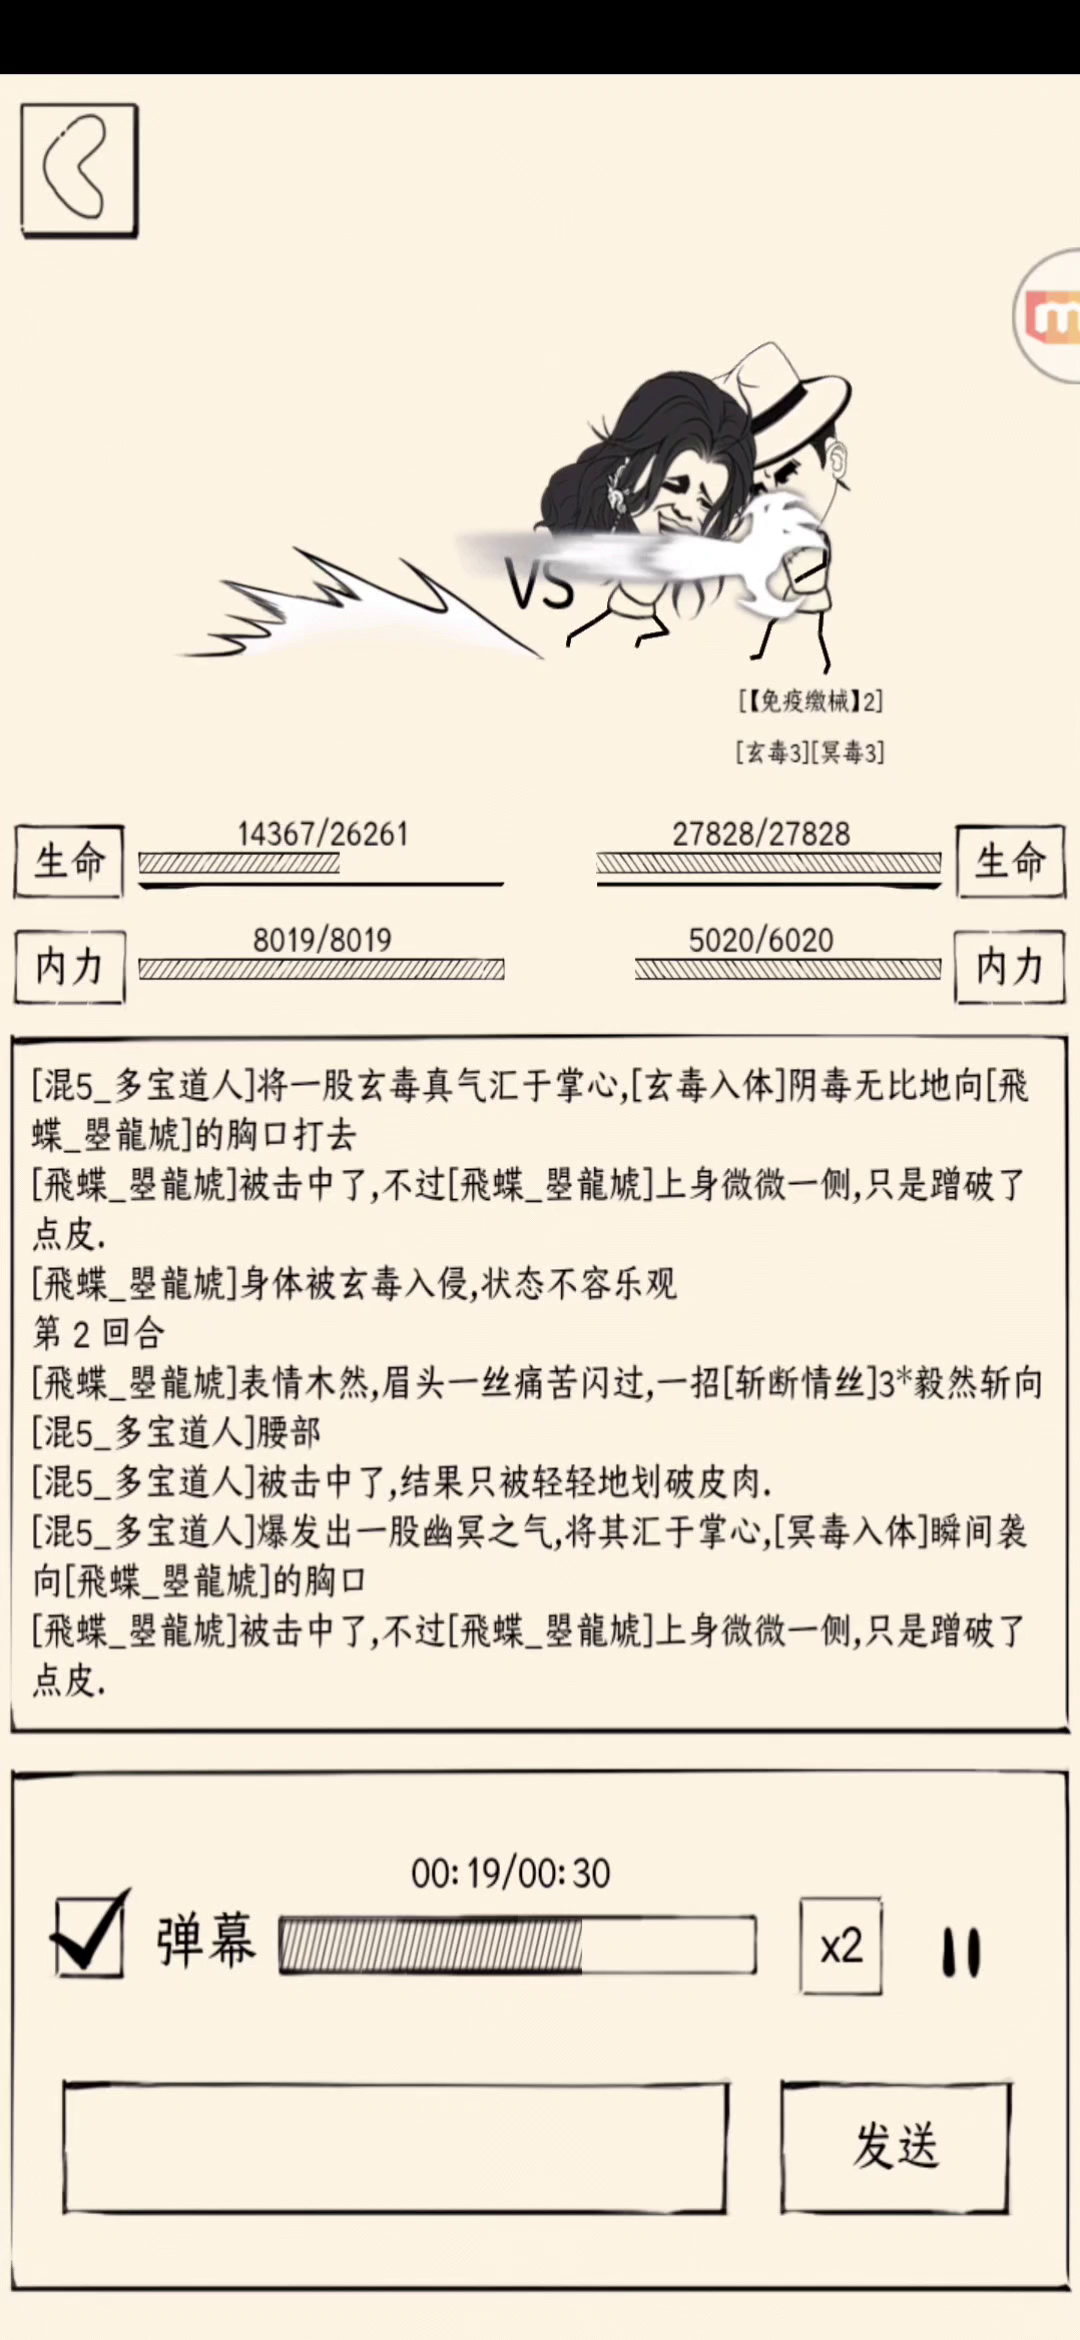 VS
[【免疫缴械】2]
[玄毒3][冥毒3]
生命
14367/26261
27828/27828
生命
内力
8019/8019
5020/6020
内力
[混5_多宝道人]将一股玄毒真气汇于掌心,[玄毒入体]阴毒无比地向[飛
蝶_曌龍虓]的胸口打去
[飛蝶_曌龍虓]被击中了,不过[飛蝶_曌龍虓]上身微微一侧,只是蹭破了
点皮.
[飛蝶_曌龍虓]身体被玄毒入侵,状态不容乐观
第 2 回合
[飛蝶_曌龍虓]表情木然,眉头一丝痛苦闪过,一招[斩断情丝]3*毅然斩向
[混5_多宝道人]腰部
[混5_多宝道人]被击中了,结果只被轻轻地划破皮肉.
[混5_多宝道人]爆发出一股幽冥之气,将其汇于掌心,[冥毒入体]瞬间袭
向[飛蝶_曌龍虓]的胸口
[飛蝶_曌龍虓]被击中了,不过[飛蝶_曌龍虓]上身微微一侧,只是蹭破了
点皮.
00:19/00:30
弹幕
x2
发送